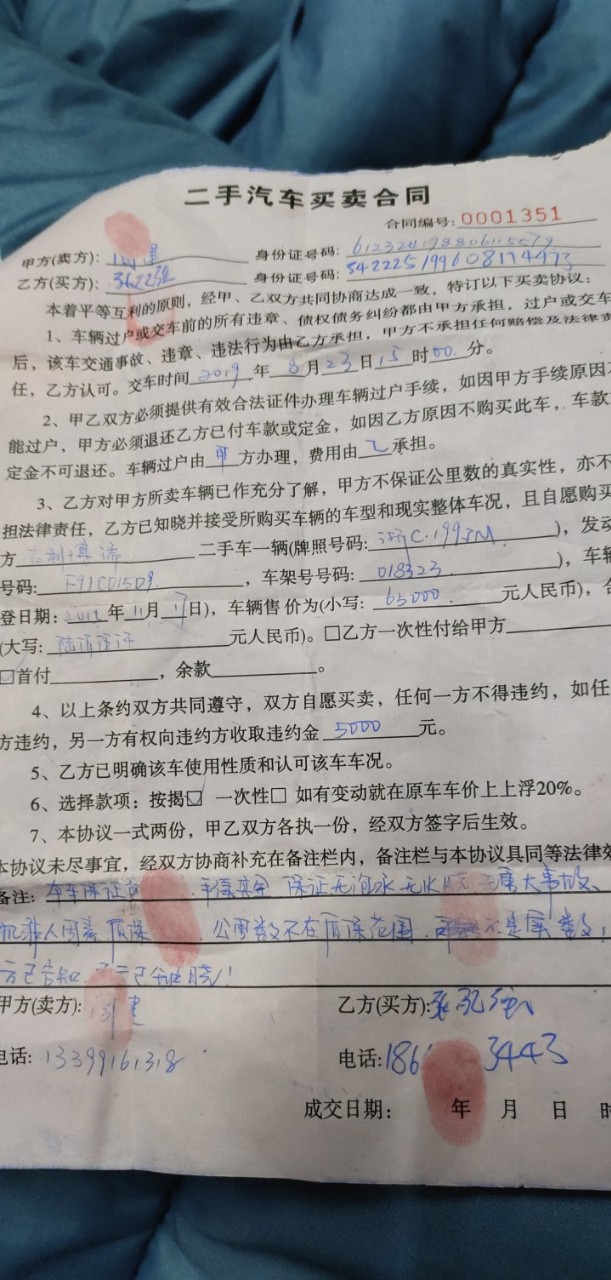 二手汽车买卖合同
合同编号:0001351
甲方(卖方): 身份证号码:
乙方(买方): 身份证号码: 342225199608174473
本着平等互利的原则，经甲、乙双方共同协商达成一致，特订以下买卖协议：
1、车辆过户或交车前的所有违章、债权债务纠纷都由甲方承担，过户或交车
后，该车交通事故、违章、违法行为由乙方承担，甲方不承担任何赔偿及法律责
任，乙方认可。交车时间 2019 年 8月23日15时00.分。
2、甲乙双方必须提供有效合法证件办理车辆过户手续，如因甲方手续原因不
能过户，甲方必须退还乙方已付车款或定金，如因乙方原因不购买此车，车款
定金不可退还。车辆过户由 甲 方办理，费用由 乙 承担。
3、乙方对甲方所卖车辆已作充分了解，甲方不保证公里数的真实性，亦不
担法律责任，乙方已知晓并接受所购买车辆的车型和现实整体车况，且自愿购买
方 二手车一辆(牌照号码: 浙C·199JM )，发动
号码: F91CD15D9 ，车架号号码: 018323 )，车辆
登日期: 年11月17日)，车辆售价为(小写: 65000 元人民币)，合
(大写: 元人民币)。□乙方一次性付给甲方
☑首付 ，余款 。
4、以上条约双方共同遵守，双方自愿买卖，任何一方不得违约，如任
方违约，另一方有权向违约方收取违约金 5000 元。
5、乙方已明确该车使用性质和认可该车车况。
6、选择款项：按揭☑ 一次性□ 如有变动就在原车车价上上浮20%。
7、本协议一式两份，甲乙双方各执一份，经双方签字后生效。
本协议未尽事宜，经双方协商补充在备注栏内，备注栏与本协议具同等法律效
备注: 本车保证 手续齐全 保证无泡水 无火烧 无重大事故、
机非人因素质保 公里数不在质保范围. 不是实数,
方已告知 已知晓!
甲方(卖方): 乙方(买方):
电话: 13399161318 电话:186 3443
成交日期: 年 月 日 时